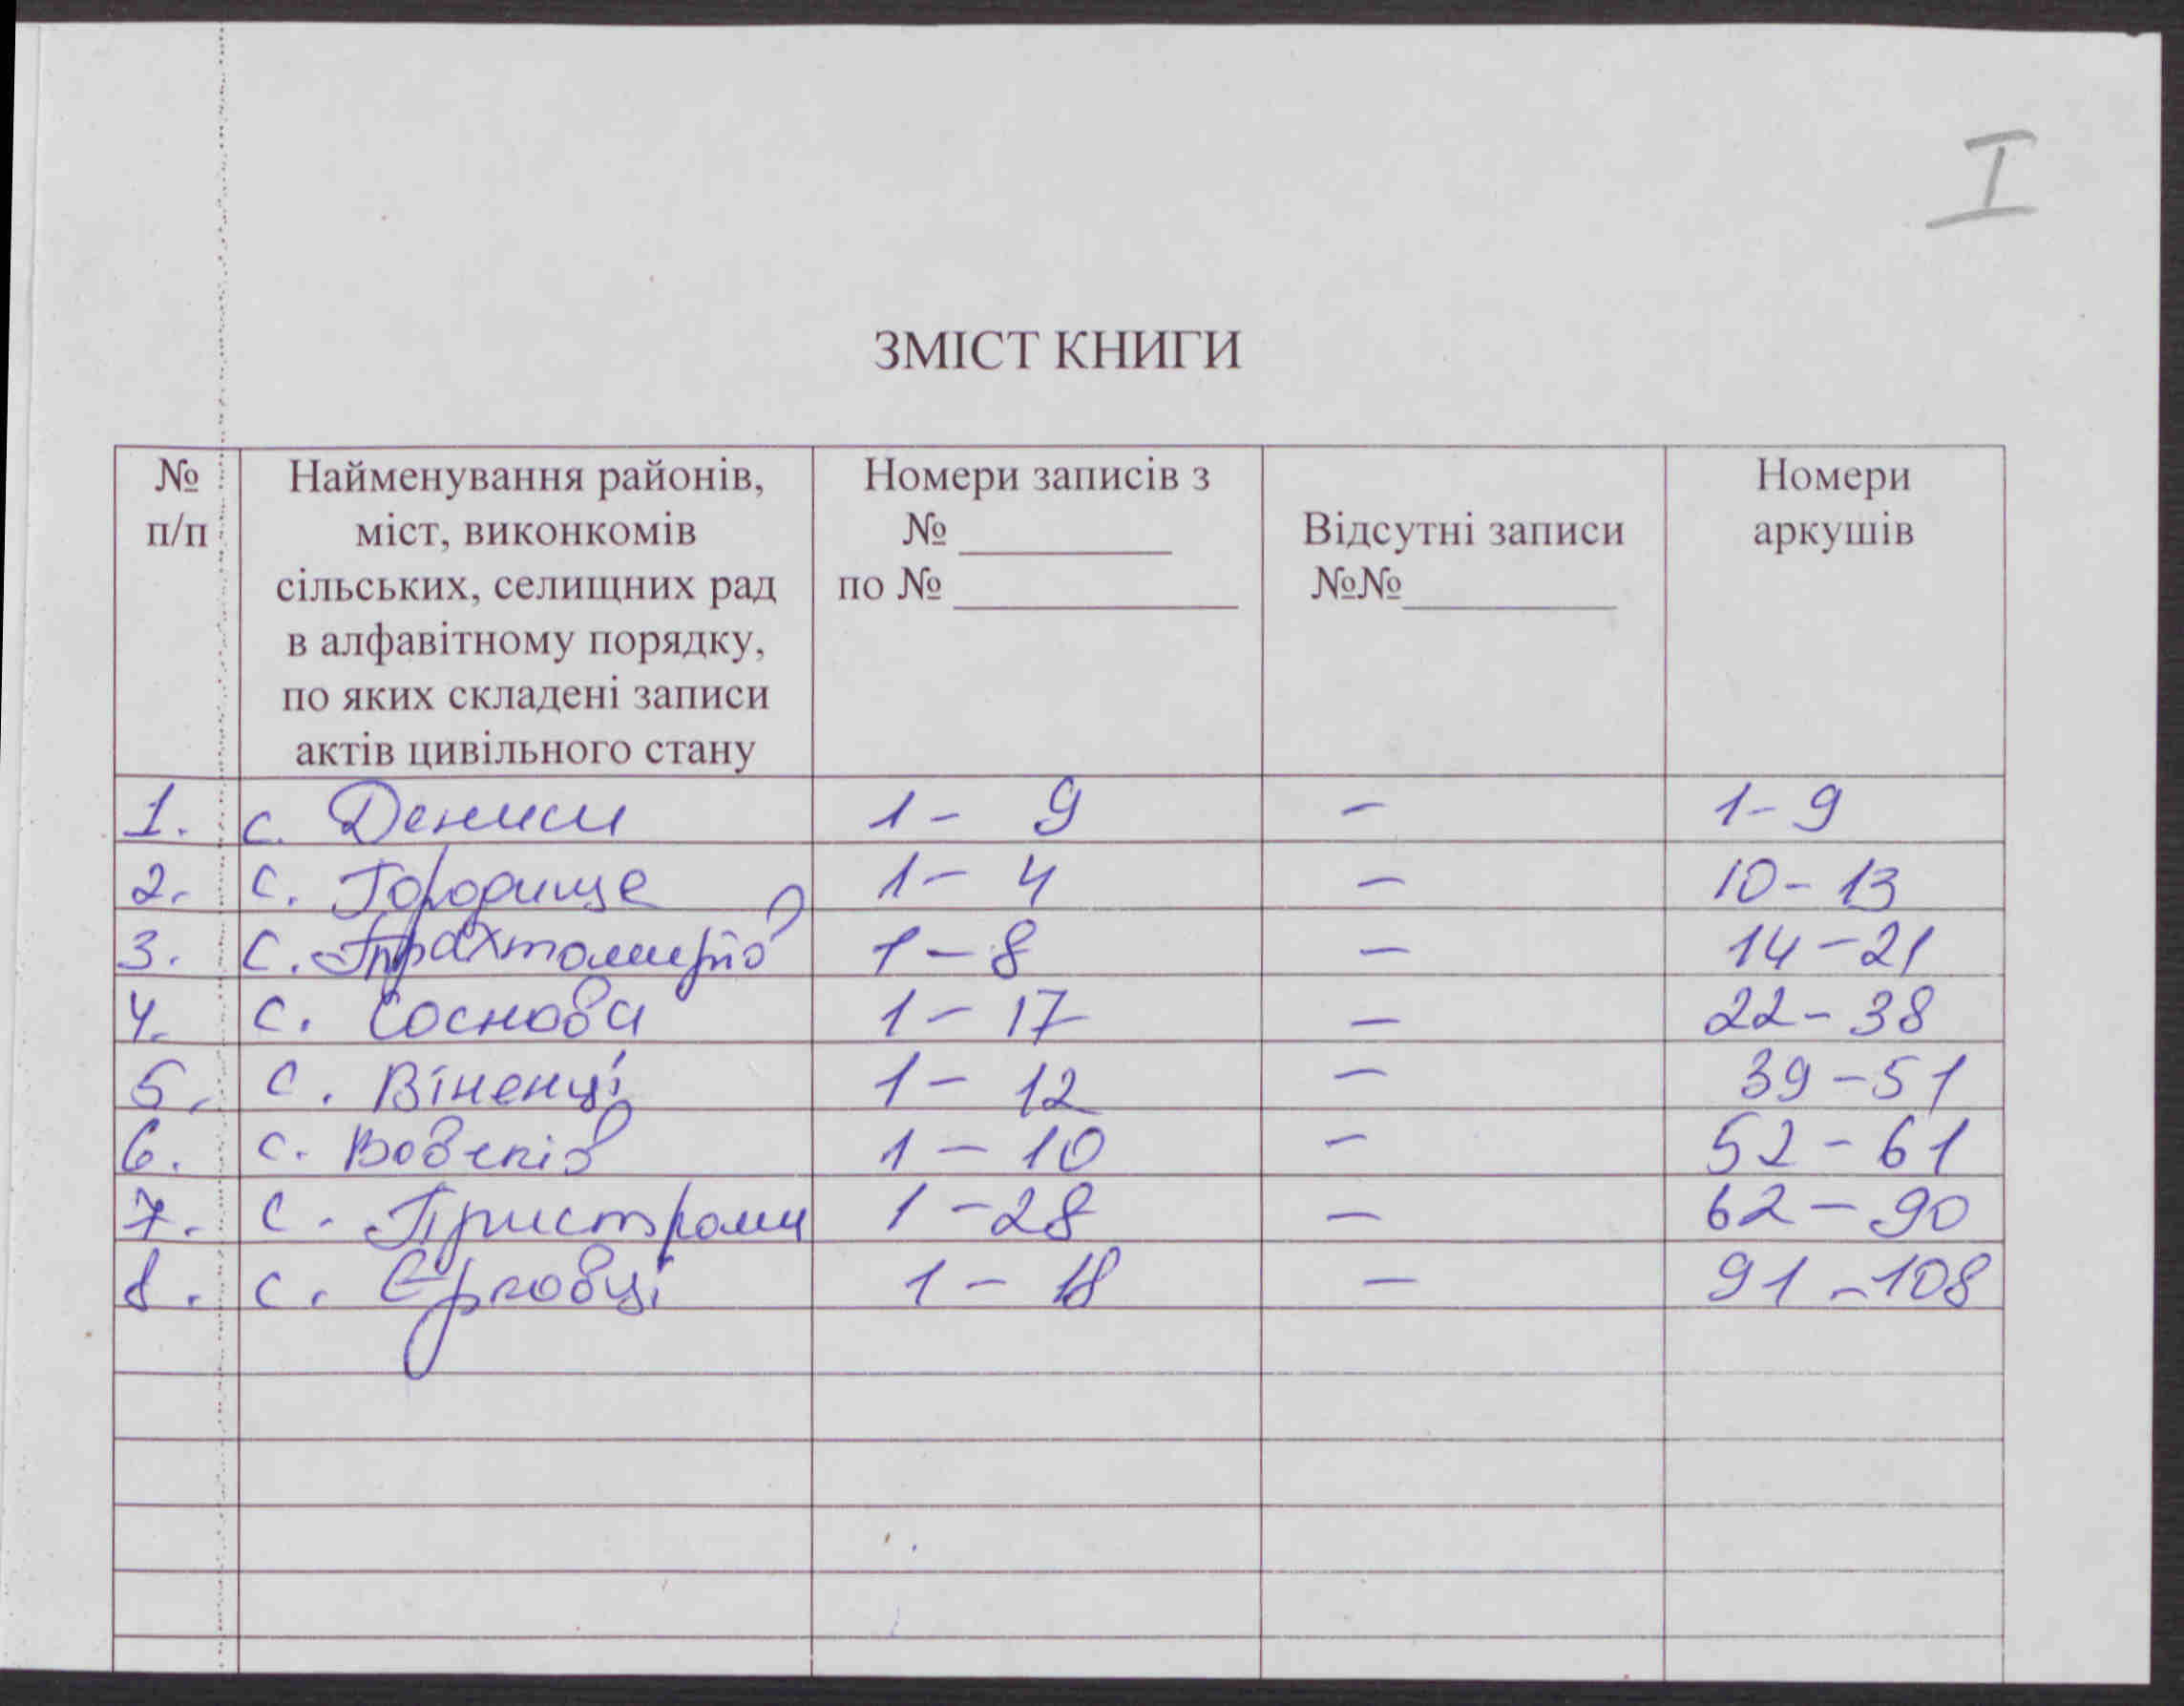 I
ЗМІСТ КНИГИ
№ п/п | Найменування районів, міст, виконкомів сільських, селищних рад в алфавітному порядку, по яких складені записи актів цивільного стану | Номери записів з № ____ по № ____ | Відсутні записи №№____ | Номери аркушів
1. с. Дениси 1 - 9 — 1-9
2. с. Городище 1 - 4 — 10-13
3. с. Трахтомирів 1-8 — 14-21
4. с. Соснова 1-17 — 22-38
5. с. Віненці 1-12 — 39-51
6. с. Вовчків 1-10 — 52-61
7. с. Пристроми 1-28 — 62-90
8. с. Єрковці 1-18 — 91-108